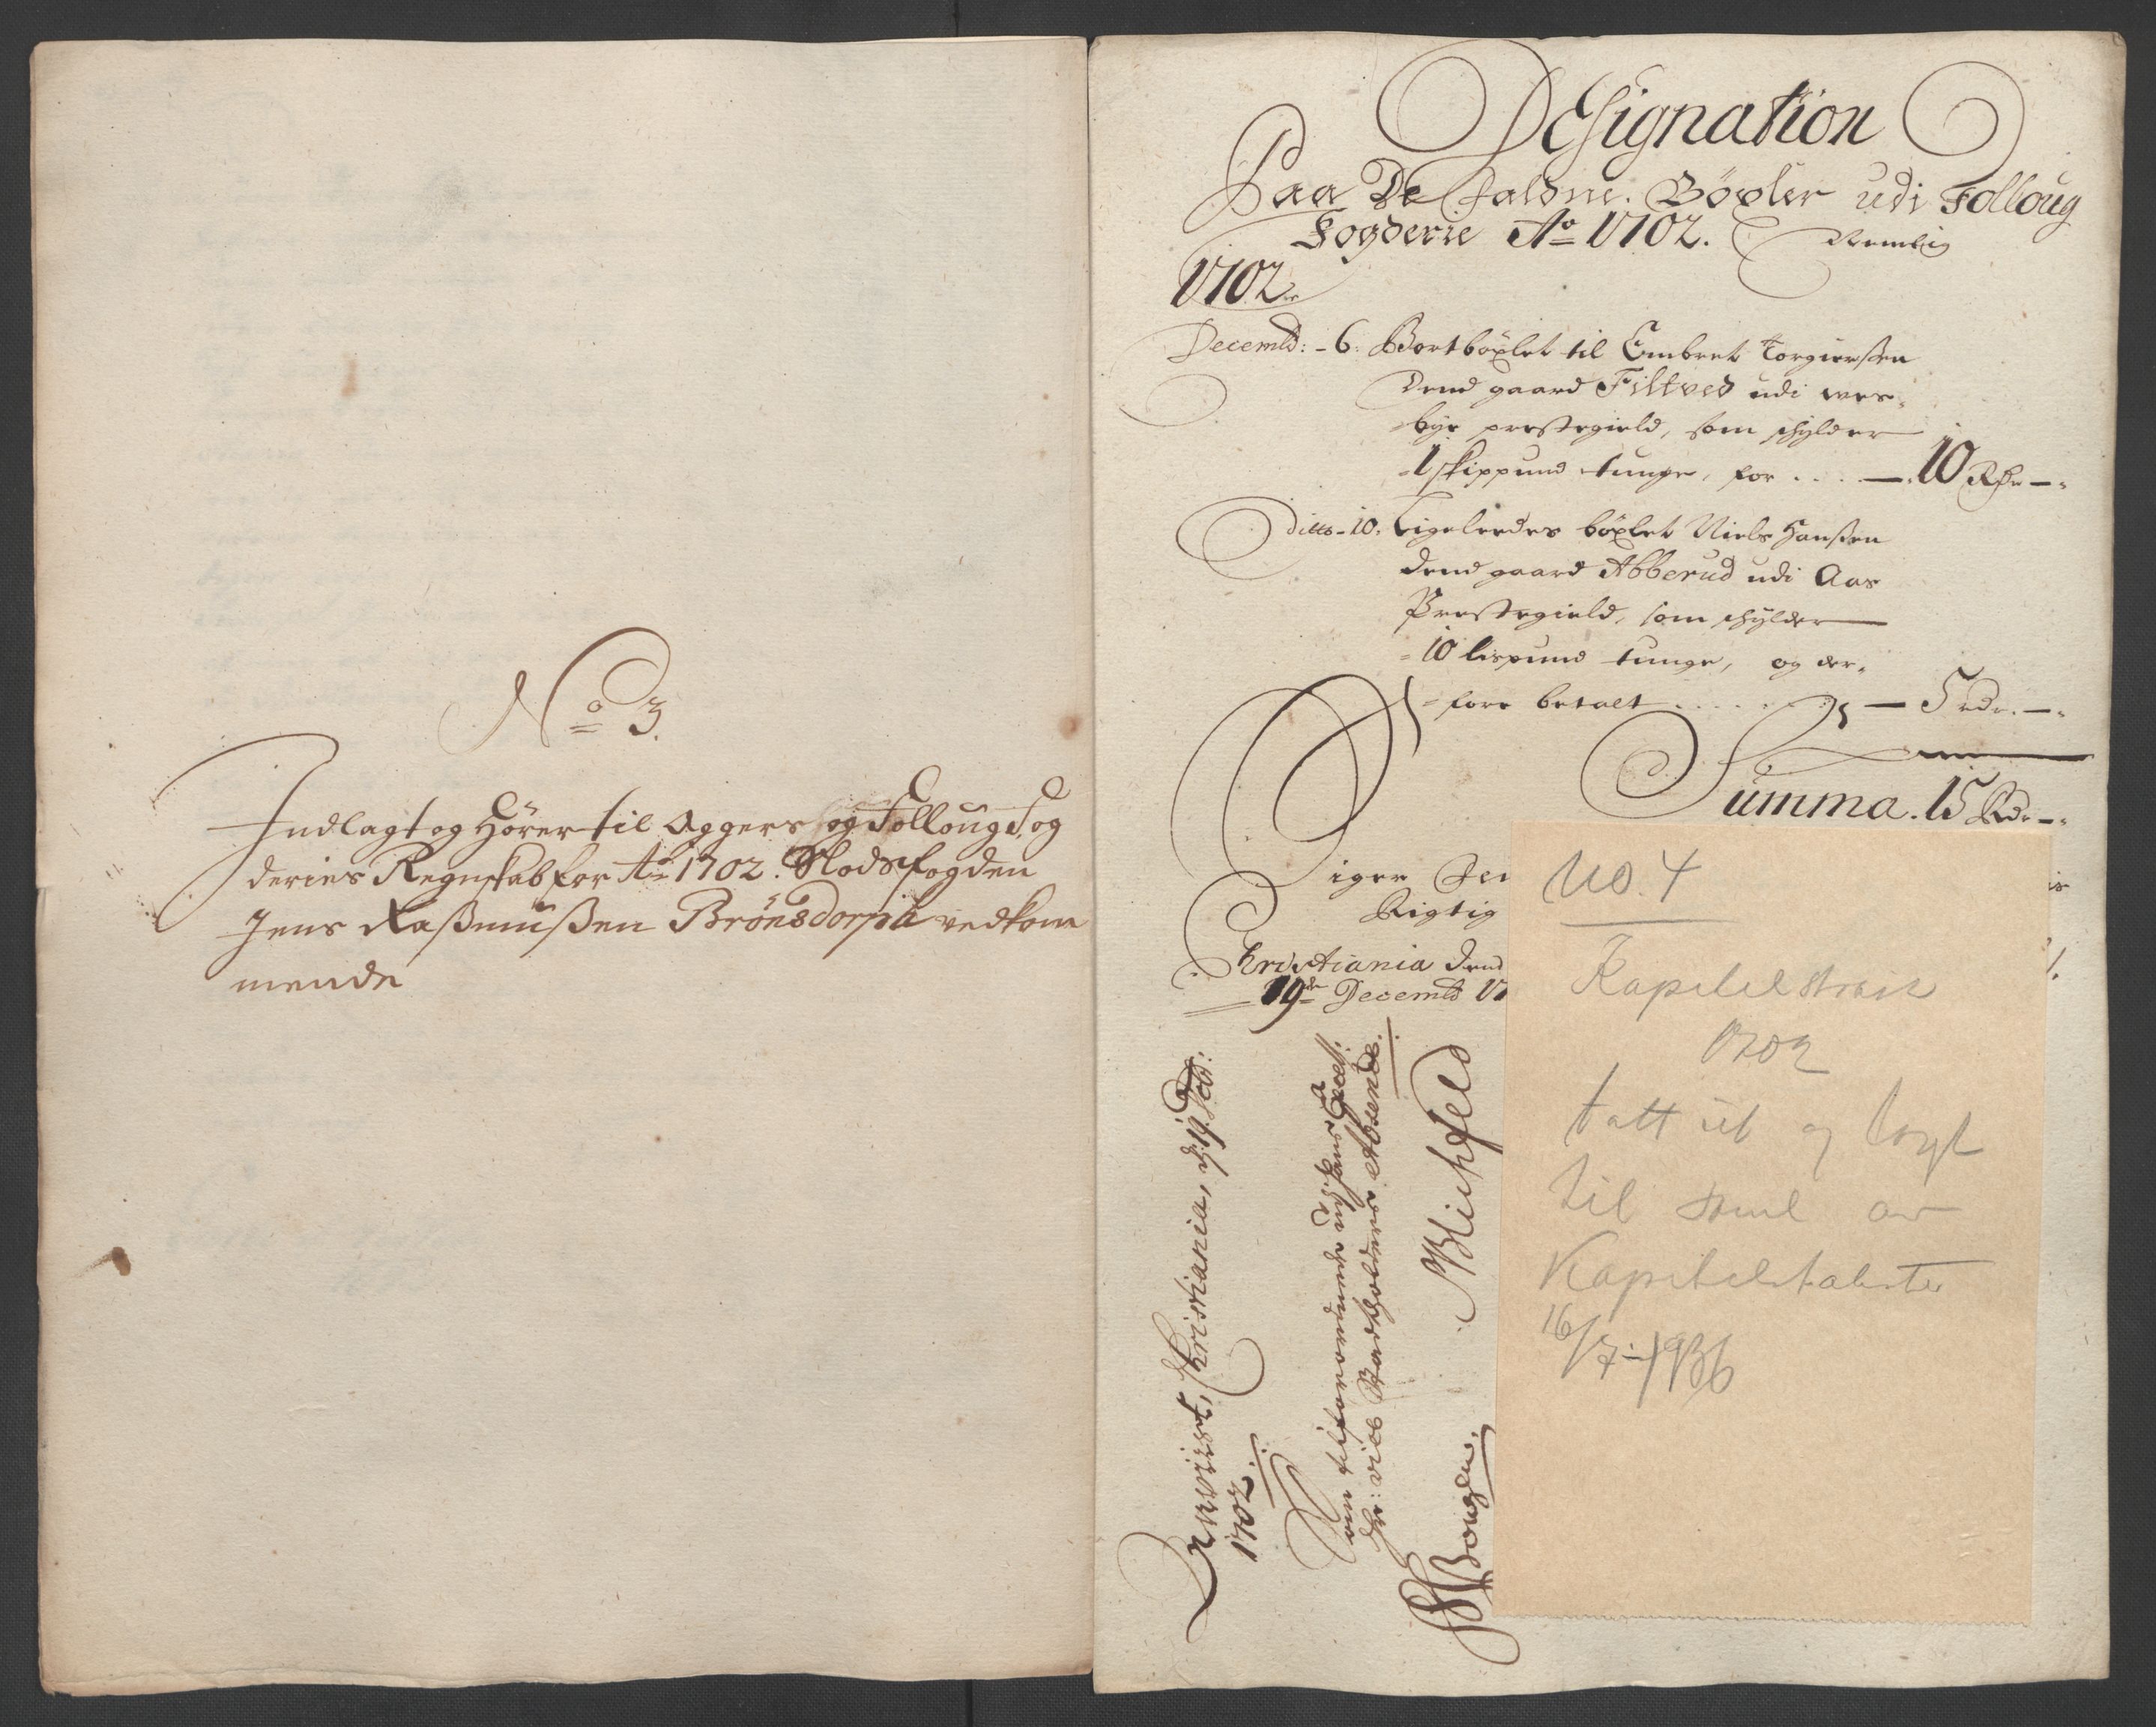 No 3.
Indlagt og Hører til Aggers og Folloug Fog
deries Regnskab for Ao 1702. Slodsfogden
Jens Rasmussen Brönsdorph vedkom
mende
Designation
Paa De faldne Böxler udi Folloug
Fogderie Ao 1702. Nemblig
1702
Decemb: - 6. Bortböxlet til Embret Torgiersen
dend gaard Filtved udi wes-
bye prestegield, som schylder
1 skippund tunge, for . . . — 10 Rdr —
Ditto - 10. Ligeleedes böxlet Niels Hanßen
dend gaard Abberud udi Aas
Prestegield, som schylder
10 lispund tunge, og der-
fore betalt . . . . . — 5 rdr. —
Summa. 15 Rdr —
Rigtig
Christiania dend
19de Decemb 17
Christiania, d. 19 Febr:
1702.
Som tilforordnede udj hans Excell:
Hr: vice Stadtholders Absence.
Blichfeld
No. 4
Kapiteltakst
1702
tatt ut og lagt
til saml av
Kapitelstakster
16/7-1936